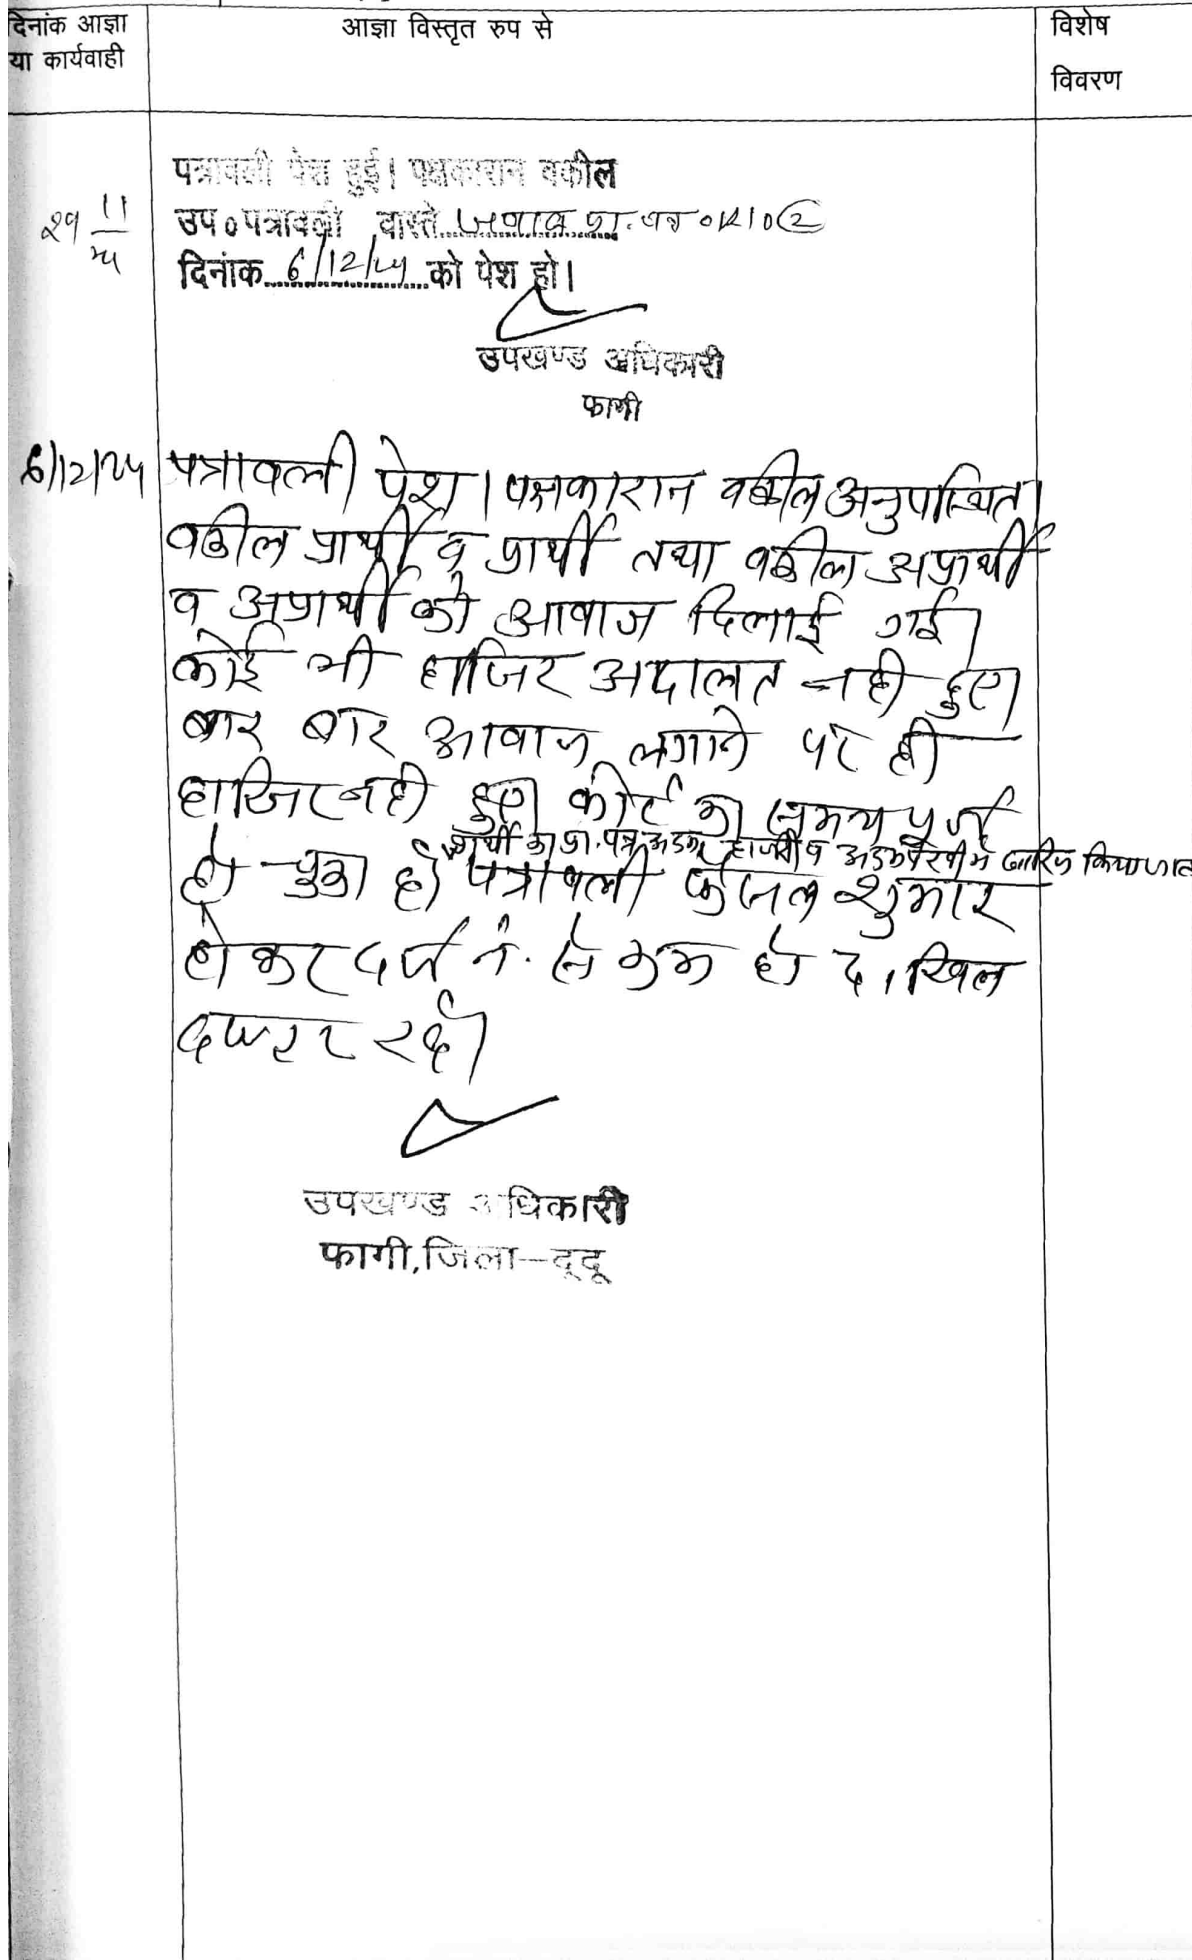 दिनांक आज्ञा
या कार्यवाही
आज्ञा विस्तृत रुप से
विशेष
विवरण
पत्रावली पेश हुई। पक्षकारान वकील
उप० पत्रावली वास्ते जवाब प्रा. पत्र
दिनांक 6/12/24 को पेश हो।
उपखण्ड अधिकारी
फागी
6/12/24
पत्रावली पेश। पक्षकारान वकील अनुपस्थित।
वकील प्रार्थी व प्रार्थी तथा वकील अप्रार्थी
व अप्रार्थी को आवाज दिलाई गई।
कोई भी हाजिर अदालत नही हुए।
बार बार आवाज लगाने पर ही
हाजिर नही हुए। कोर्ट का समय पूर्ण
प्रार्थी का प्रा. पत्र अदम हाजरी व अदम पैरवी मे खारिज किया जाता
हो चुका है। पत्रावली फैसल शुमार
होकर दर्ज नं. से कम हो दाखिल
दफ्तर रहे।
उपखण्ड अधिकारी
फागी, जिला-दूदू